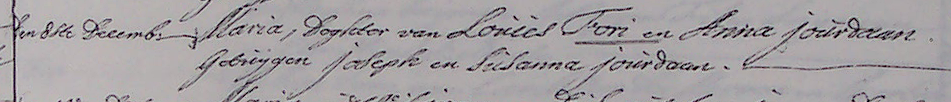 den 8ste Decemb: Maria, dogter van Louies Fori en Anna jourdaan.
Getuygen joseph en Susanna jourdaan.